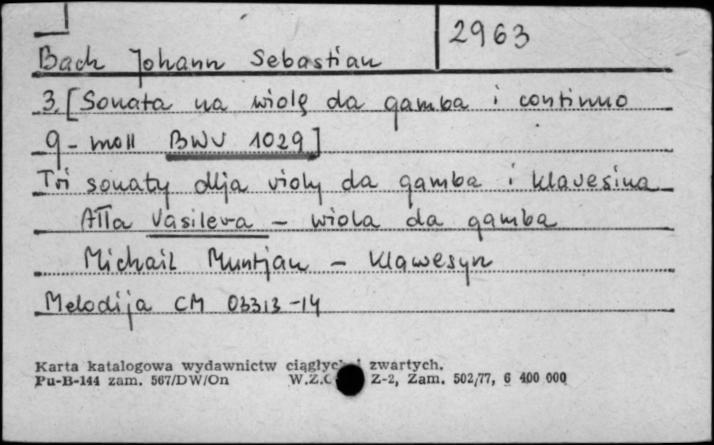 2963
Bach Johann Sebastian
3. [Sonata na wiolę da gamba i continuo
g-moll BWV 1029]
Tri sonaty dlja violy da gamba i klavesina
Ałła Vasileva - wiola da gamba
Michail Muntjan - klawesyn
Melodija CM 03313-14
Karta katalogowa wydawnictw ciągłych i zwartych.
Pu-B-144 zam. 567/DW/On W.Z.G Z-2, Zam. 502/77, 6 400 000